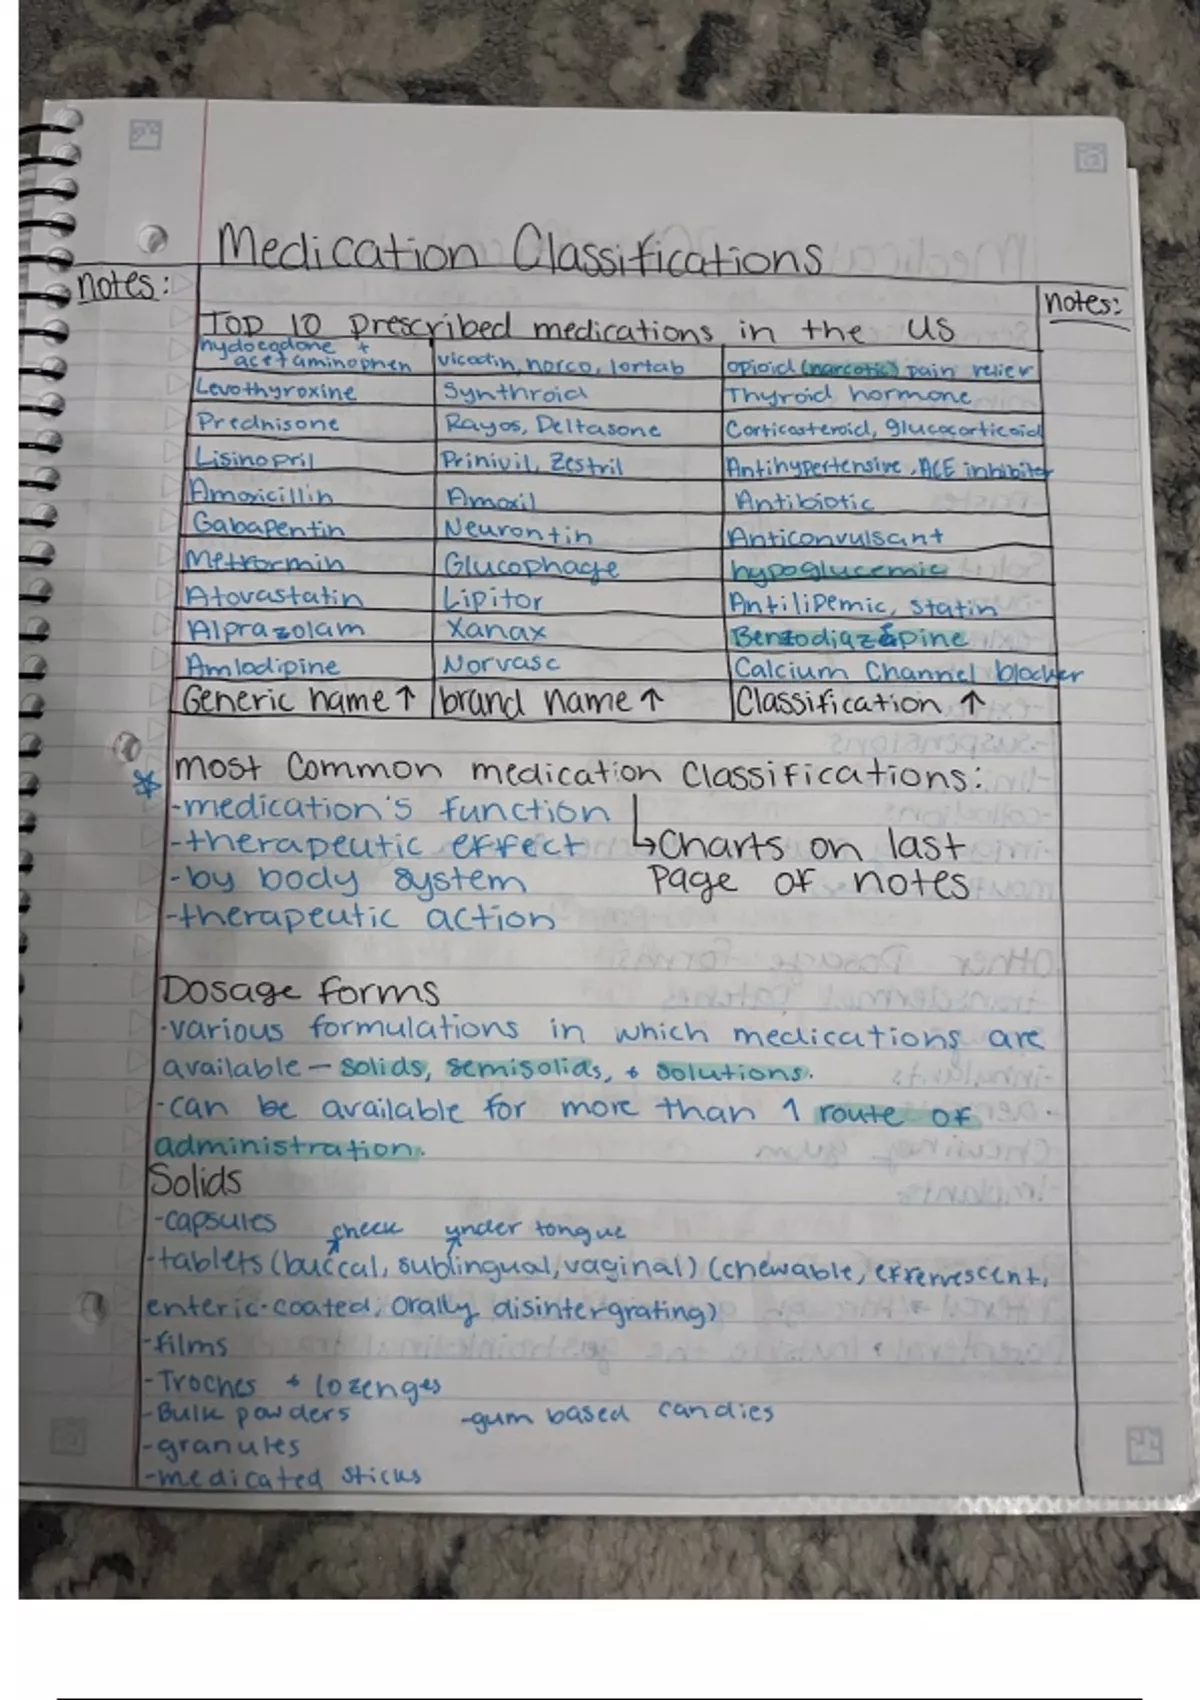 Medication Classifications
notes:
notes:
Top 10 prescribed medications in the US
hydocodone + acetaminophen | vicodin, norco, lortab | opioid (narcotic) pain reliev
Levothyroxine | Synthroid | Thyroid hormone
Prednisone | Rayos, Deltasone | Corticosteroid, glucocorticoid
Lisinopril | Prinivil, Zestril | Antihypertensive, ACE inhibiter
Amoxicillin | Amoxil | Antibiotic
Gabapentin | Neurontin | Anticonvulsant
Metformin | Glucophage | hypoglucemic
Atovastatin | Lipitor | Antilipemic, statin
Alprazolam | Xanax | Benzodiazepine
Amlodipine | Norvasc | Calcium Channel blocker
Generic name ↑ | brand name ↑ | Classification ↑
* most Common medication Classifications:
-medication's function
-therapeutic effect ↳Charts on last
-by body system Page of notes
-therapeutic action
Dosage forms
-various formulations in which medications are
available — solids, semisolids, + solutions.
-can be available for more than 1 route of
administration.
Solids
-capsules cheek under tongue
-tablets (buccal, sublingual, vaginal) (chewable, effervescent,
enteric-coated, orally disintergrating)
-films
-Troches + lozenges
-Bulk powders -gum based candies
-granules
-medicated sticks